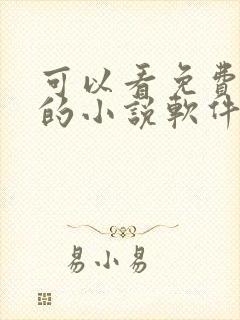 可以看免費
的小說軟件
易小易